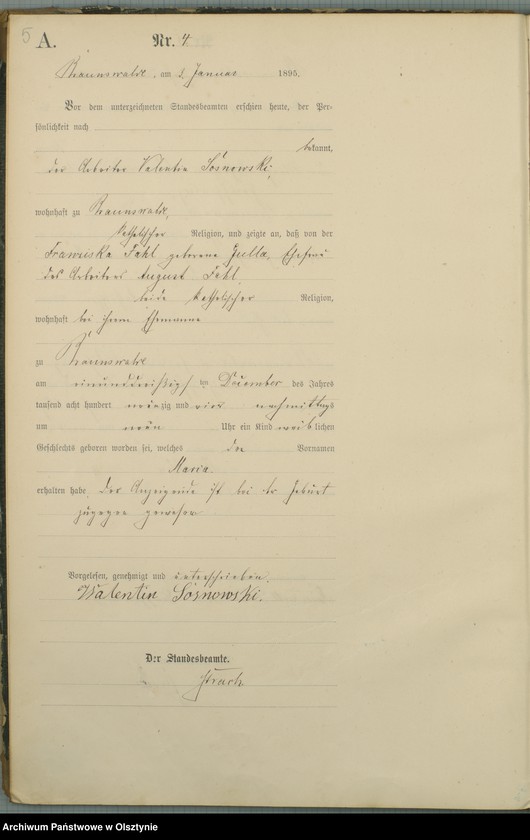 5
A.
Nr. 4.
Braunswalde, am 2. Januar 1895.
Vor dem unterzeichneten Standesbeamten erschien heute, der Per-
sönlichkeit nach
bekannt,
der Arbeiter Valentin Sosnowski,
wohnhaft zu Braunswalde,
katholischer Religion, und zeigte an, daß von der
Franziska Fahl geborene Julla, Ehefrau
des Arbeiters August Fahl,
beide katholischer Religion,
wohnhaft bei ihrem Ehemanne
zu Braunswalde
am einunddreißigsten December des Jahres
tausend acht hundert neunzig und vier nachmittags
um neun Uhr ein Kind weiblichen
Geschlechts geboren worden sei, welches den Vornamen
Maria
erhalten habe. Der Anzeigende ist bei der Geburt
zugegen gewesen
Vorgelesen, genehmigt und unterschrieben.
Walentin Sosnowski.
Der Standesbeamte.
Archiwum Państwowe w Olsztynie